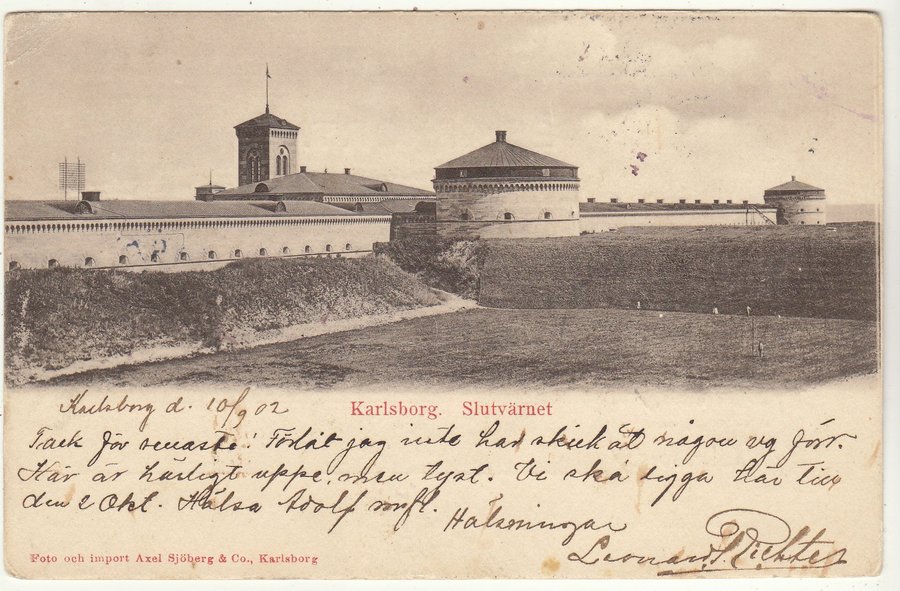 Karlsborg d. 10/9 02
Karlsborg. Slutvärnet
Tack för senaste! Förlåt jag inte har skickat någon vy förr.
Här är härligt uppe, men tyst. Vi ska ligga här till
den 2 Okt. Hälsa Adolf
Hälsningar
Leonard Richter
Foto och import Axel Sjöberg & Co., Karlsborg